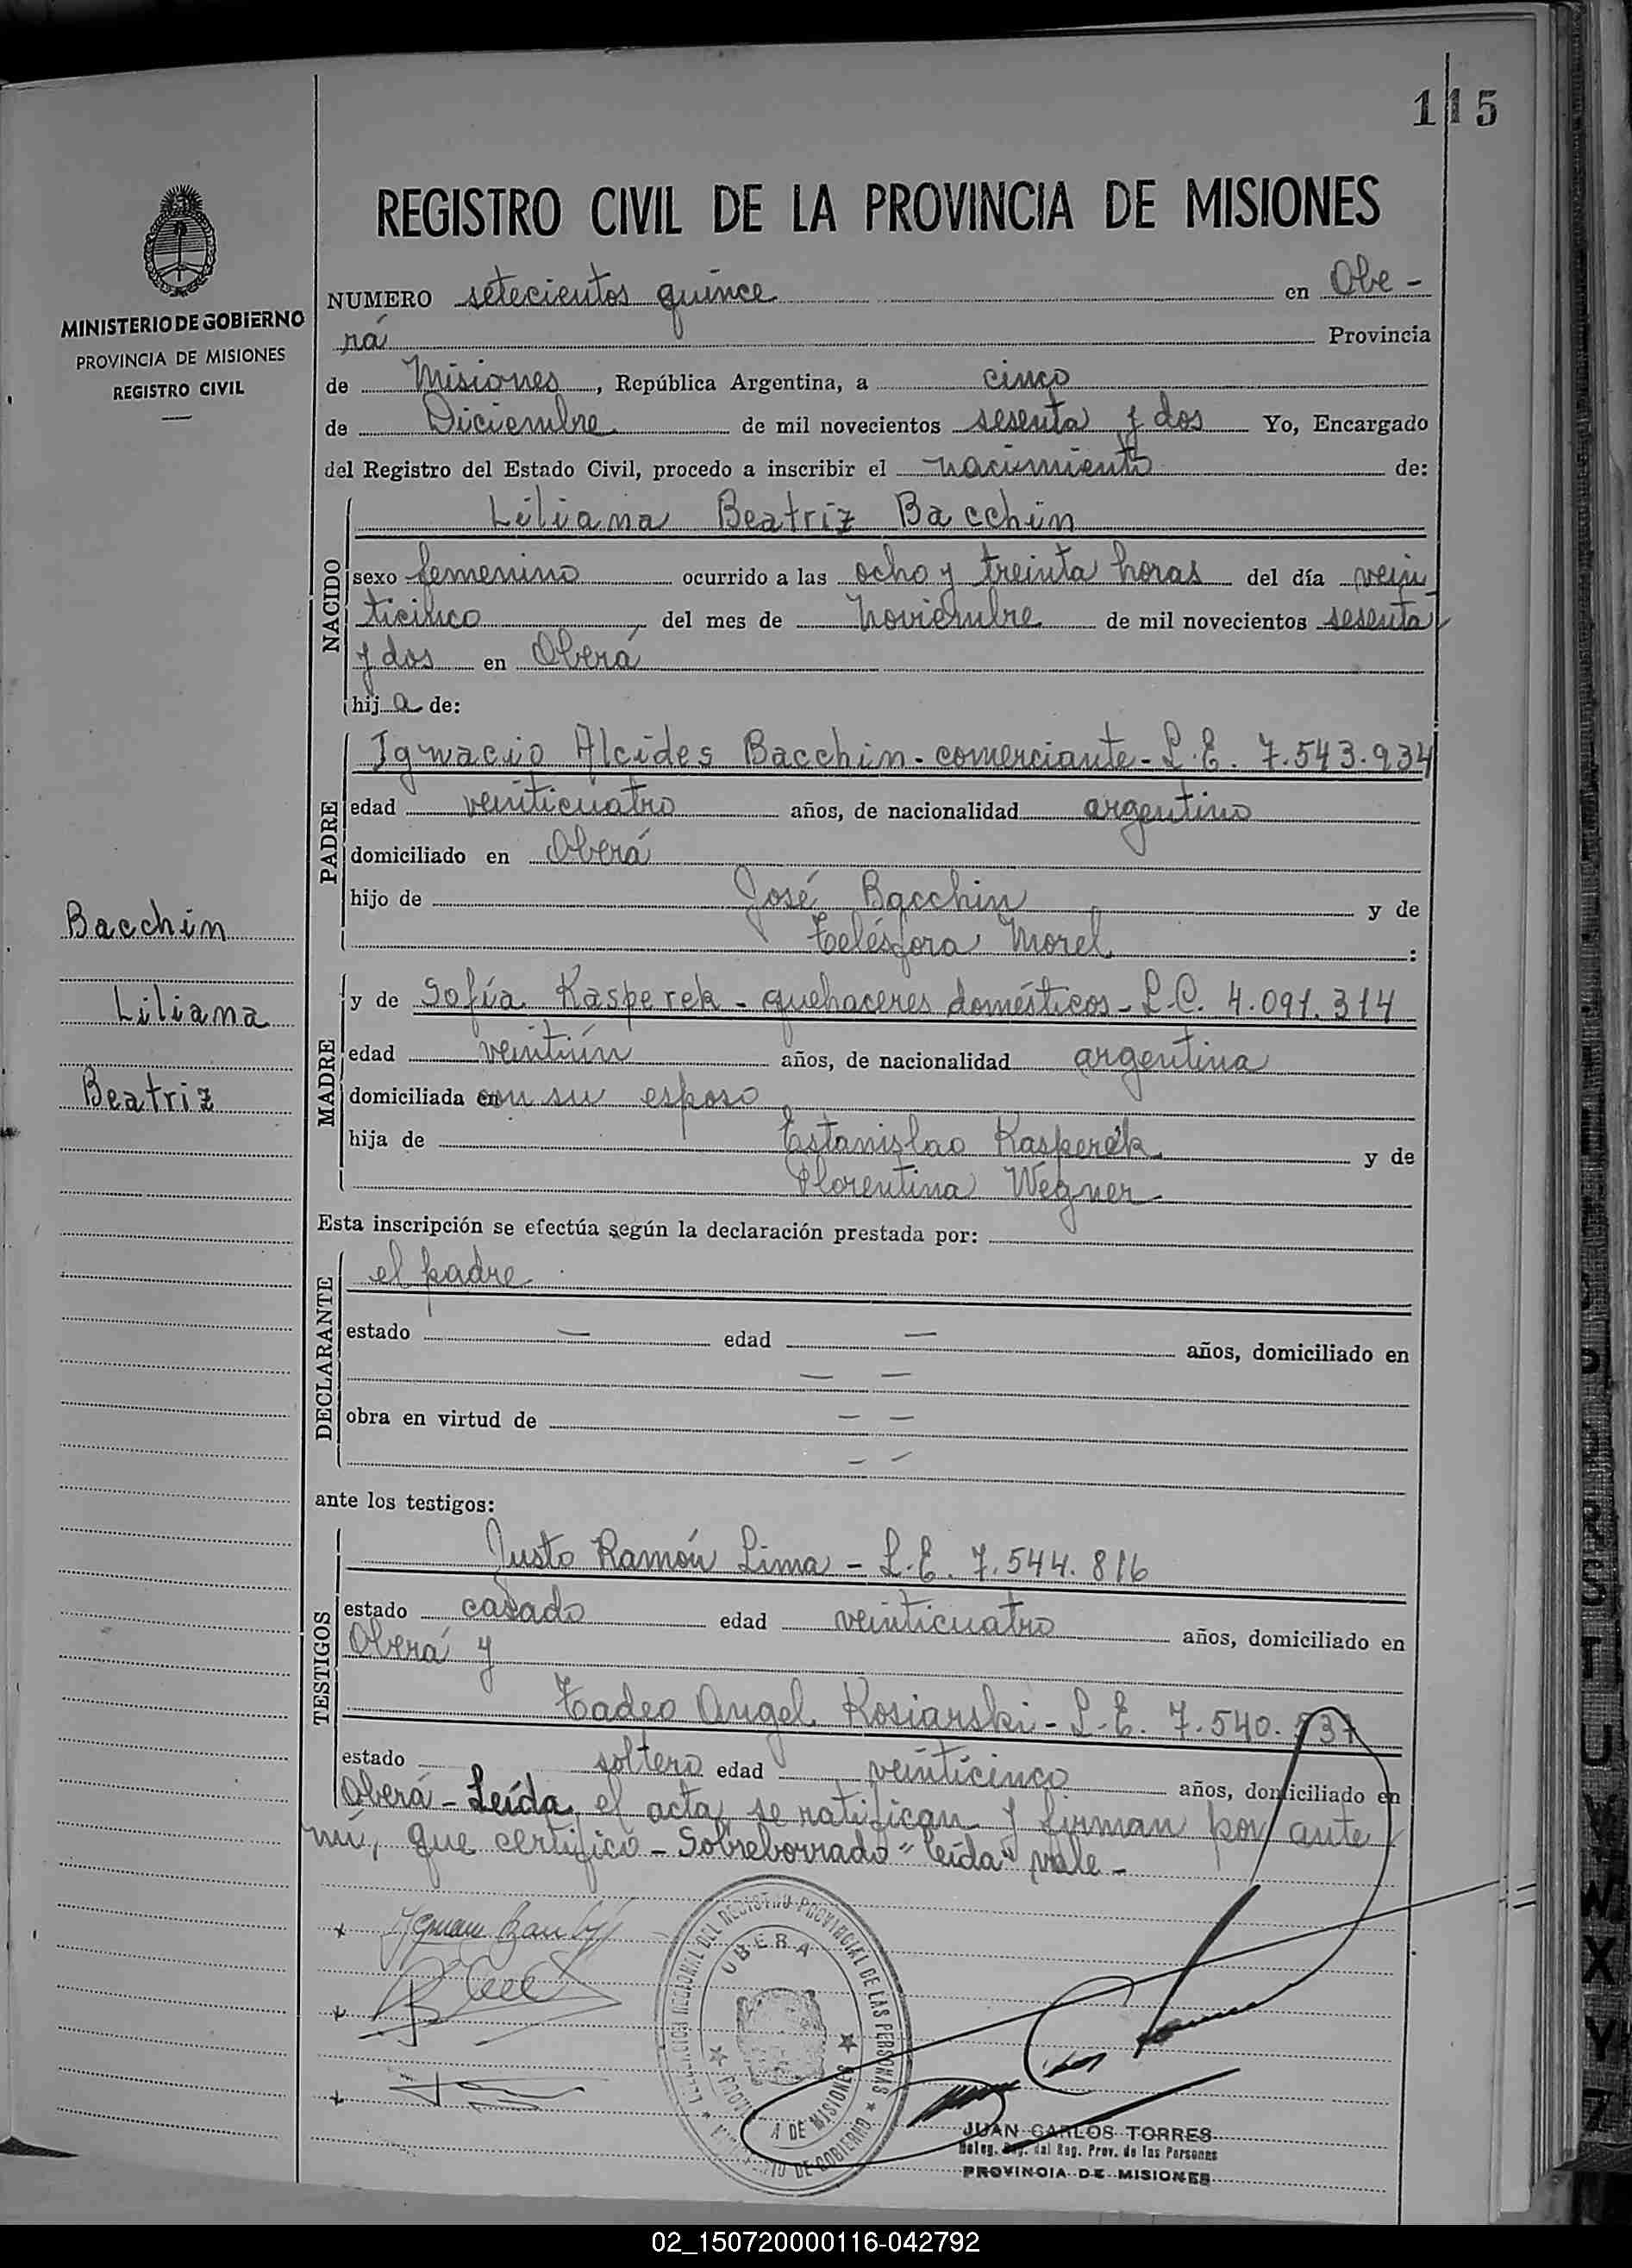 115
REGISTRO CIVIL DE LA PROVINCIA DE MISIONES
MINISTERIO DE GOBIERNO
PROVINCIA DE MISIONES
REGISTRO CIVIL
NUMERO setecientos quince en Obe-
rá Provincia
de Misiones, República Argentina, a cinco
de Diciembre de mil novecientos sesenta y dos Yo, Encargado
del Registro del Estado Civil, procedo a inscribir el nacimiento de:
NACIDO
Liliana Beatriz Bacchin
sexo femenino ocurrido a las ocho y treinta horas del día vein
ticinco del mes de noviembre de mil novecientos sesenta
y dos en Oberá
hija de:
PADRE
Ignacio Alcides Bacchin - comerciante - L.E. 7.543.934
edad veinticuatro años, de nacionalidad argentino
domiciliado en Oberá
hijo de José Bacchin y de
Telésfora Morel :
Bacchin
Liliana
Beatriz
MADRE
y de Sofía Kasperek - quehaceres domésticos - L.C. 4.091.314
edad veintiún años, de nacionalidad argentina
domiciliada en con su esposo
hija de Estanislao Kasperek y de
Florentina Wegner
Esta inscripción se efectúa según la declaración prestada por:
DECLARANTE
el padre
estado — edad — años, domiciliado en
— —
obra en virtud de — —
— —
ante los testigos:
TESTIGOS
Justo Ramón Lima - L.E. 7.544.816
estado casado edad veinticuatro años, domiciliado en
Oberá y
Tadeo Angel Kosiarski - L.E. 7.540.537
estado soltero edad veinticinco años, domiciliado en
Oberá - Leída el acta, se ratifican y firman por ante
mí, que certifico - Sobreborrado "leída" vale -
DELEGACION REGIONAL DEL REGISTRO PROVINCIAL DE LAS PERSONAS
OBERA
PROVINCIA DE MISIONES
MINISTERIO DE GOBIERNO
JUAN CARLOS TORRES
Deleg. Reg. del Reg. Prov. de las Personas
PROVINCIA DE MISIONES
S
T
U
V
W
X
Y
Z
02_150720000116-042792